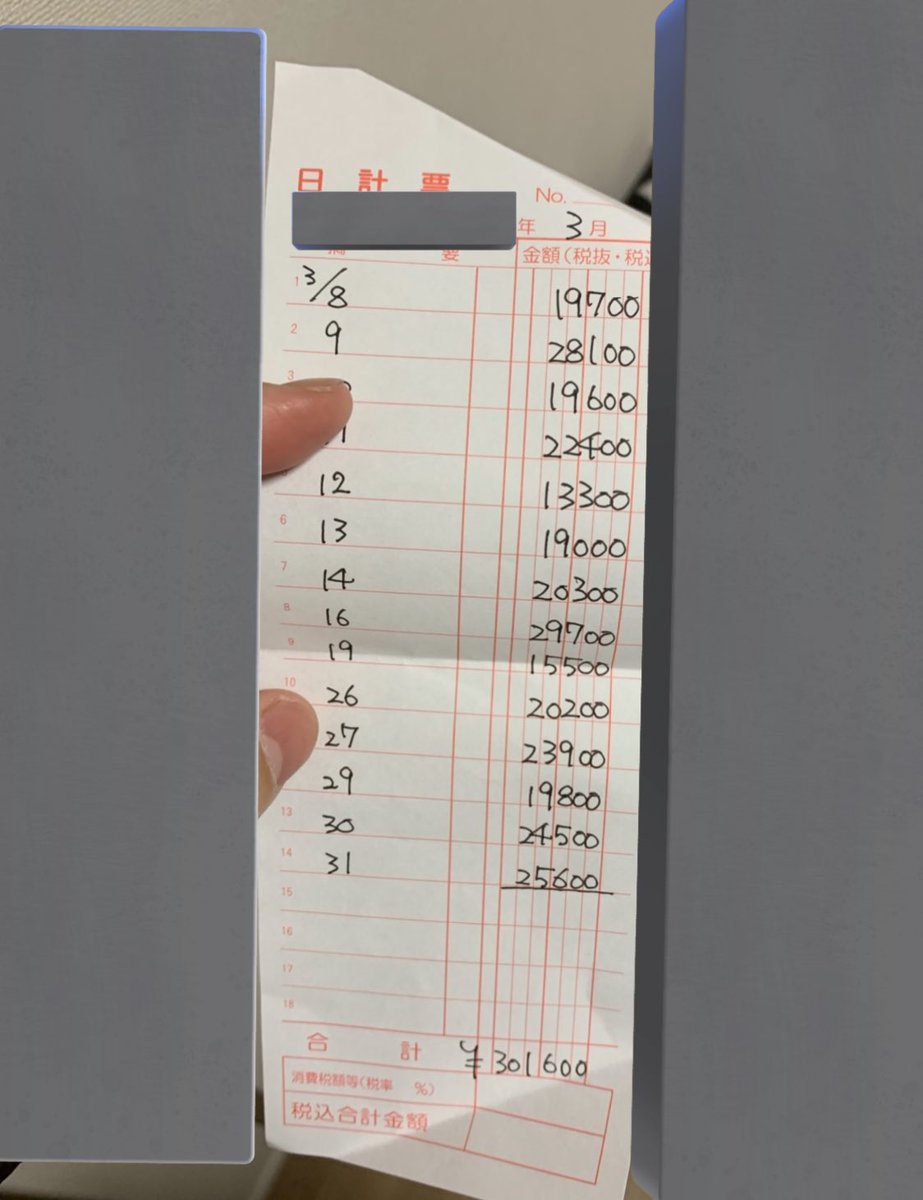 日計票
No.
年 3月
摘 要 金額(税抜・税込
1 3/8 19700
2 9 28100
3 19600
22400
12 13300
6 13 19000
7 14 20300
8 16 29700
9 19 15500
10 26 20200
27 23900
29 19800
13 30 24500
14 31 25600
15
16
17
18
合計 ¥301600
消費税額等(税率 %)
税込合計金額